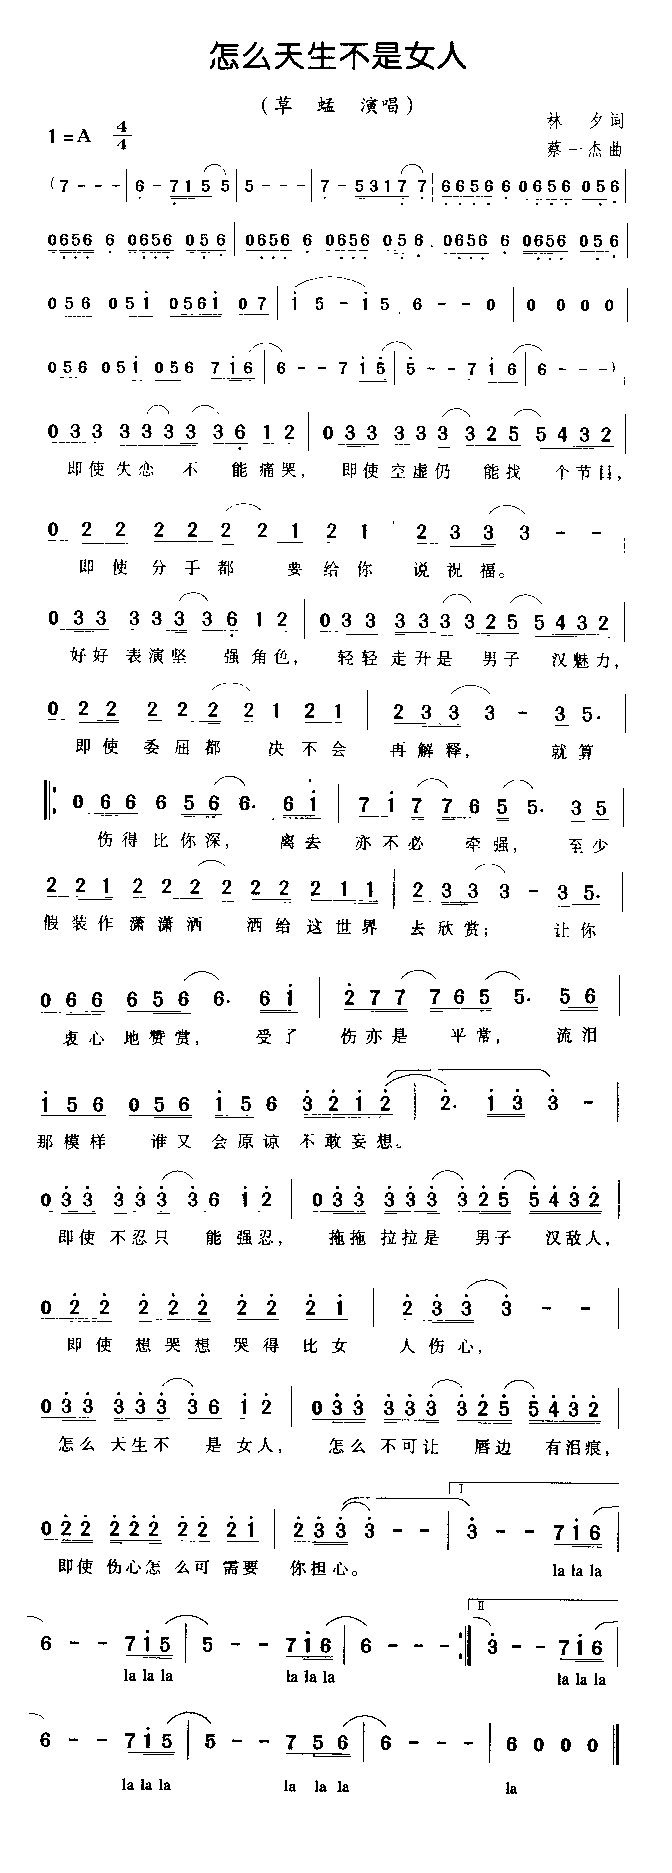 怎么天生不是女人
(草 蜢 演唱)
1=A 4/4
林 夕词
蔡一杰曲
(7 - - - | 6 - 7 1 5 5 | 5 - - - | 7 - 5 3 1 7 7 | 6 6 5 6 6 0 6 5 6 0 5 6 |
0656 6 0656 056 | 0656 6 0656 056 . 0656 6 0656 056 |
056 051 0561 07 | 1 5 - 1 5 6 - - 0 | 0 0 0 0 |
056 051 056 716 | 6 - - 7 1 5 | 5 - - 7 1 6 | 6 - - -)
0 3 3 3 3 3 3 3 6 1 2 | 0 3 3 3 3 3 3 2 5 5 4 3 2 |
即使失恋 不 能痛哭, 即使空虚仍 能找 个节目,
0 2 2 2 2 2 2 2 1 2 1 2 3 3 3 - -
即使 分手都 要给你 说祝福。
0 3 3 3 3 3 3 6 1 2 | 0 3 3 3 3 3 3 2 5 5 4 3 2 |
好好 表演坚 强角色, 轻轻 走升是 男子 汉魅力,
0 2 2 2 2 2 2 1 2 1 | 2 3 3 3 - 3 5.
即使 委屈都 决不会 再解释, 就算
0 6 6 6 5 6 6. 6 1 | 7 1 7 7 6 5 5. 3 5
伤得比你深, 离去 亦不必 牵强, 至少
2 2 1 2 2 2 2 2 2 2 1 1 | 2 3 3 3 - 3 5.
假装作 潇潇洒 洒给这世界 去欣赏; 让你
0 6 6 6 5 6 6. 6 1 | 2 7 7 7 6 5 5. 5 6
衷心 地赞赏, 受了 伤亦是 平常, 流泪
1 5 6 0 5 6 1 5 6 3 2 1 2 | 2. 1 3 3 -
那模样 谁又 会原谅 不敢妄想。
0 3 3 3 3 3 3 6 1 2 | 0 3 3 3 3 3 3 2 5 5 4 3 2 |
即使 不忍只 能强忍, 拖拖 拉拉是 男子 汉敌人,
0 2 2 2 2 2 2 2 2 1 | 2 3 3 3 - - |
即使 想哭想 哭得 比女 人伤心,
0 3 3 3 3 3 3 6 1 2 | 0 3 3 3 3 3 3 2 5 5 4 3 2
怎么 天生不 是女人, 怎么 不可让 唇边 有泪痕,
I
0 2 2 2 2 2 2 2 2 1 | 2 3 3 3 - - | 3 - - 7 1 6
即使 伤心怎 么可 需要 你担心。 la la la
II
6 - - 7 1 5 | 5 - - 7 1 6 | 6 - - :| 3 - - 7 1 6
la la la la la la la la la
6 - - 7 1 5 | 5 - - 7 5 6 | 6 - - - | 6 0 0 0 ‖
la la la la la la la